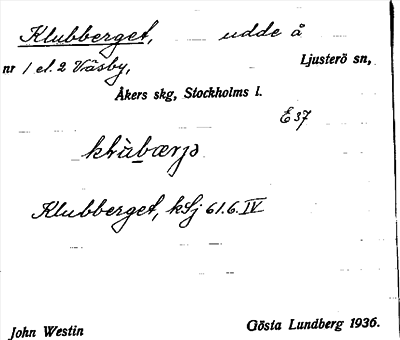 Klubberget, udde å
nr 1 el. 2 Väsby, Ljusterö sn,
Åkers skg, Stockholms l.
E 37
Klubberget, kSj 61.6.IV
John Westin Gösta Lundberg 1936.